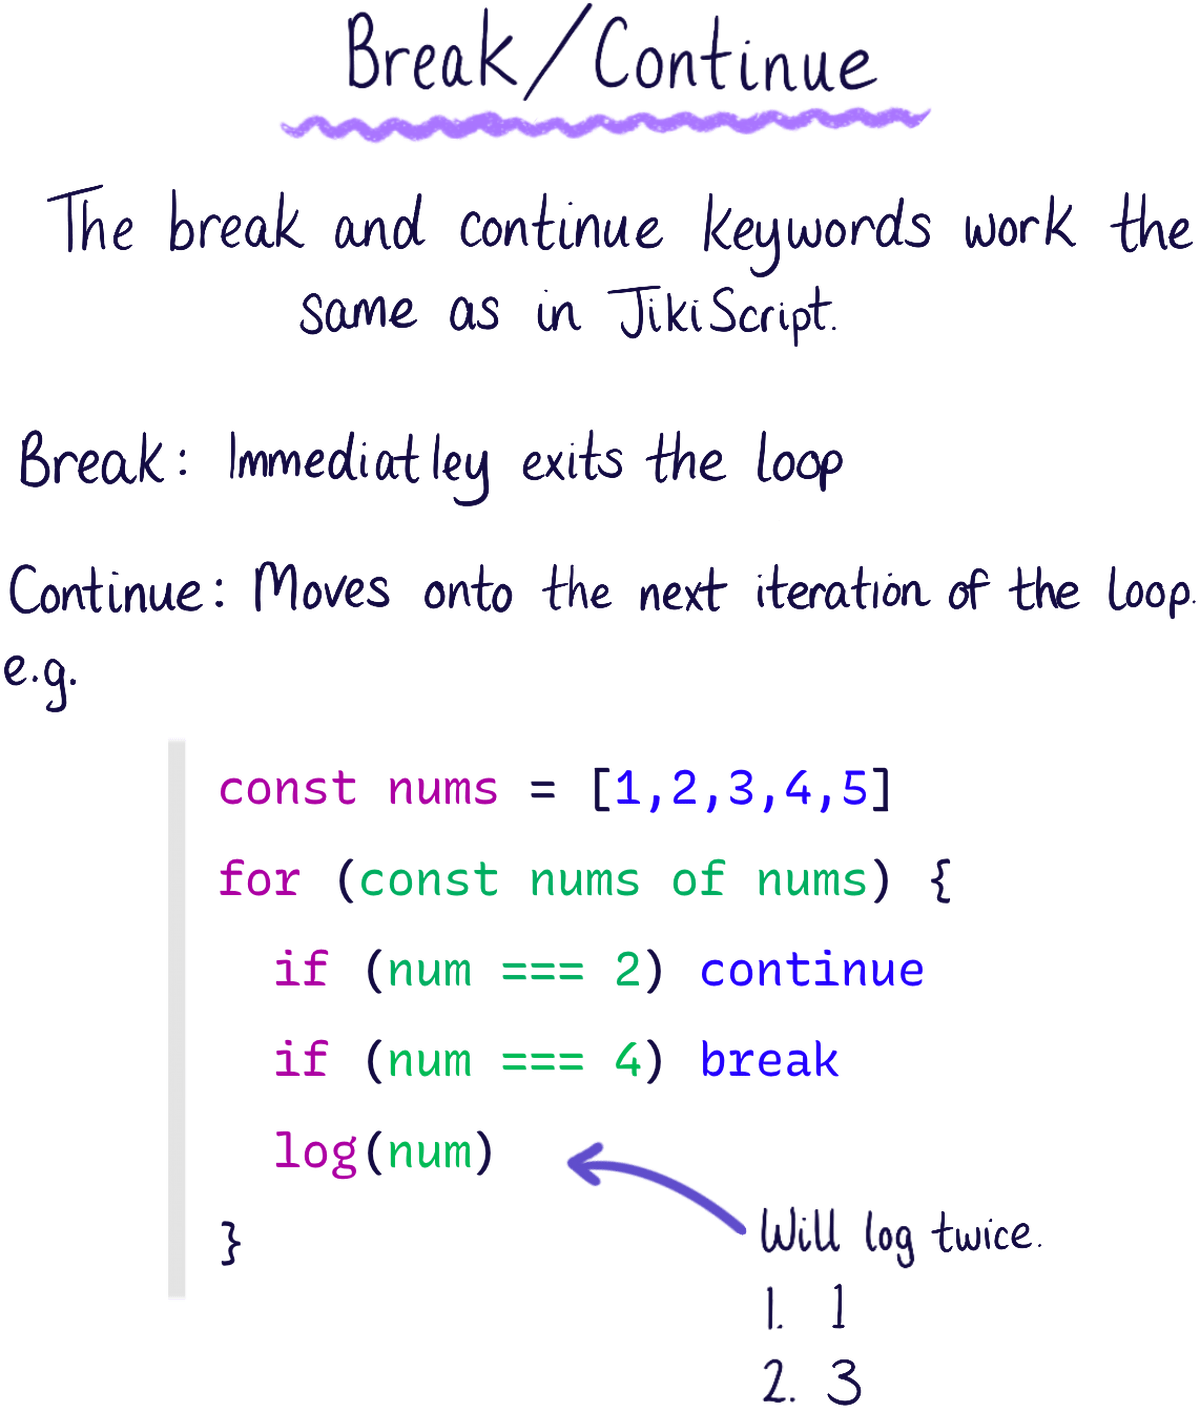 Break/Continue
The break and continue keywords work the
same as in JikiScript.
Break: Immediatley exits the loop
Continue: Moves onto the next iteration of the loop.
e.g.
const nums = [1,2,3,4,5]
for (const nums of nums) {
if (num === 2) continue
if (num === 4) break
log(num)
}
Will log twice.
1. 1
2. 3